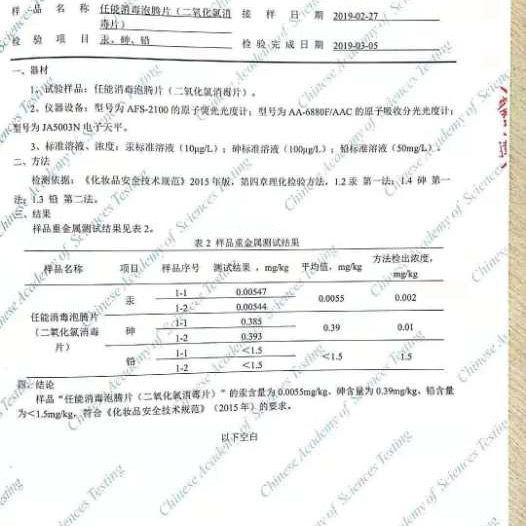 样 品 名 称 任能消毒泡腾片（二氧化氯消 接 样 日 期 2019-02-27
毒片）
检 验 项 目 汞、砷、铅 检 验 完 成 日 期 2019-03-05
一、器材
1、试验样品：任能消毒泡腾片（二氧化氯消毒片）。
2、仪器设备：型号为 AFS-2100 的原子荧光光度计；型号为 AA-6880F/AAC 的原子吸收分光光度计；
型号为 JA5003N 电子天平。
3、标准溶液、浓度：汞标准溶液（10μg/L）；砷标准溶液（100μg/L）；铅标准溶液（50mg/L）。
二、方法
检测依据：《化妆品安全技术规范》2015 年版，第四章理化检验方法，1.2 汞 第一法；1.4 砷 第一
法；1.3 铅 第二法。
三、结果
样品重金属测试结果见表 2。
表 2 样品重金属测试结果
样品名称 项目 样品序号 测试结果 ，mg/kg 平均值，mg/kg 方法检出浓度，
mg/kg
任能消毒泡腾片
（二氧化氯消毒
片）
汞 1-1 0.00547 0.0055 0.002
1-2 0.00544
砷 1-1 0.385 0.39 0.01
1-2 0.393
铅 1-1 <1.5 <1.5 1.5
1-2 <1.5
四、结论
样品“任能消毒泡腾片（二氧化氯消毒片）”的汞含量为 0.0055mg/kg、砷含量为 0.39mg/kg、铅含量
为<1.5mg/kg，符合《化妆品安全技术规范》（2015 年）的要求。
以下空白
Chinese Academy of Sciences Testing